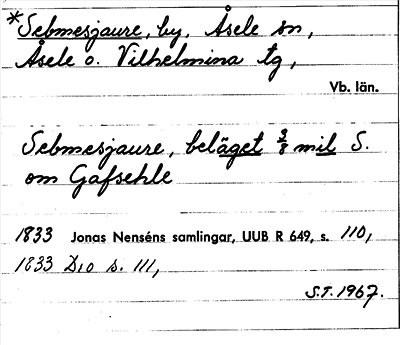 *Sebmesjaure, by, Åsele sn,
Åsele o. Vilhelmina tg,
Vb. län.
Sebmesjaure, beläget 3/8 mil S.
om Gafsehle
1833 Jonas Nenséns samlingar, UUB R 649, s. 110,
1833 D:o s. 111,
S.T. 1967.